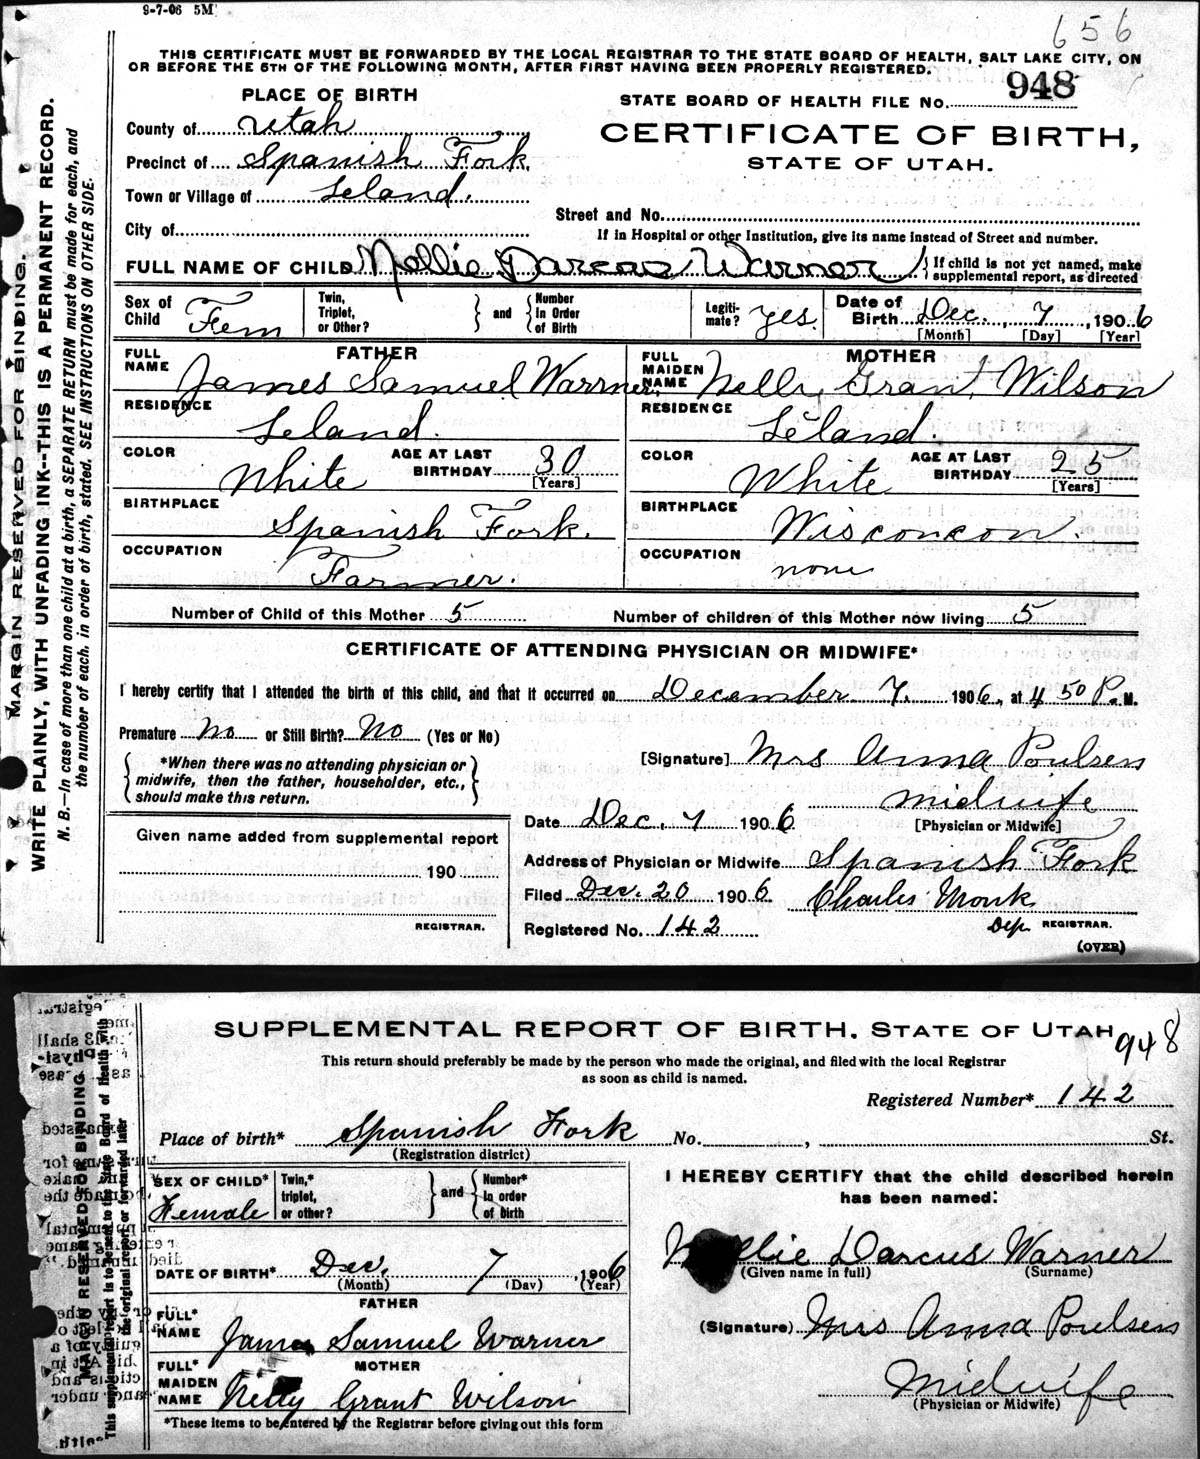 9-7-06 5M
656
THIS CERTIFICATE MUST BE FORWARDED BY THE LOCAL REGISTRAR TO THE STATE BOARD OF HEALTH, SALT LAKE CITY, ON
OR BEFORE THE 5TH OF THE FOLLOWING MONTH, AFTER FIRST HAVING BEEN PROPERLY REGISTERED.
PLACE OF BIRTH
STATE BOARD OF HEALTH FILE No. 948
County of Utah
CERTIFICATE OF BIRTH,
STATE OF UTAH.
Precinct of Spanish Fork
Town or Village of Leland.
Street and No.
City of
If in Hospital or other Institution, give its name instead of Street and number.
FULL NAME OF CHILD Nollie Darcas Warner } If child is not yet named, make supplemental report, as directed
Sex of Child Fem
Twin, Triplet, or Other? } and { Number in Order of Birth
Legiti-mate? yes.
Date of Birth Dec. 7, 1906
[Month] [Day] [Year]
FATHER
FULL NAME James Samuel Warrner.
RESIDENCE Leland.
COLOR White
AGE AT LAST BIRTHDAY 30 [Years]
BIRTHPLACE Spanish Fork.
OCCUPATION Farmer.
MOTHER
FULL MAIDEN NAME Nelly Grant Wilson
RESIDENCE Leland.
COLOR White
AGE AT LAST BIRTHDAY 25 [Years]
BIRTHPLACE Wisconcon.
OCCUPATION none
Number of Child of this Mother 5
Number of children of this Mother now living 5
CERTIFICATE OF ATTENDING PHYSICIAN OR MIDWIFE*
I hereby certify that I attended the birth of this child, and that it occurred on December 7. 1906, at 4 50 P. M.
Premature No or Still Birth? No (Yes or No)
*When there was no attending physician or
midwife, then the father, householder, etc.,
should make this return.
[Signature] Mrs Anna Poulsen
midwife
[Physician or Midwife]
Date Dec. 7 1906
Given name added from supplemental report
190
REGISTRAR.
Address of Physician or Midwife Spanish Fork
Filed Dec. 20 1906 Charles Monk
Registered No. 142
Dep. REGISTRAR.
(OVER)
MARGIN RESERVED FOR BINDING.
WRITE PLAINLY, WITH UNFADING INK--THIS IS A PERMANENT RECORD.
N. B.—In case of more than one child at a birth, a SEPARATE RETURN must be made for each, and
the number of each, in order of birth, stated. SEE INSTRUCTIONS ON OTHER SIDE.
SUPPLEMENTAL REPORT OF BIRTH. STATE OF UTAH
948
This return should preferably be made by the person who made the original, and filed with the local Registrar
as soon as child is named.
Registered Number* 142
Place of birth* Spanish Fork No. , St.
(Registration district)
SEX OF CHILD* Female
Twin,* triplet, or other? } and { Number* in order of birth
I HEREBY CERTIFY that the child described herein
has been named:
DATE OF BIRTH* Dec. 7, 1906
(Month) (Day) (Year)
llie Darcus Warner
(Given name in full) (Surname)
FATHER
FULL* NAME James Samuel Warner
(Signature) Mrs Anna Poulsen
MOTHER
FULL* MAIDEN NAME Nelly Grant Wilson
Midwife
(Physician or Midwife)
*These items to be entered by the Registrar before giving out this form
MARGIN RESERVED FOR BINDING
This supplemental report is to be sent to the State Board of Health with
the original report or forwarded later